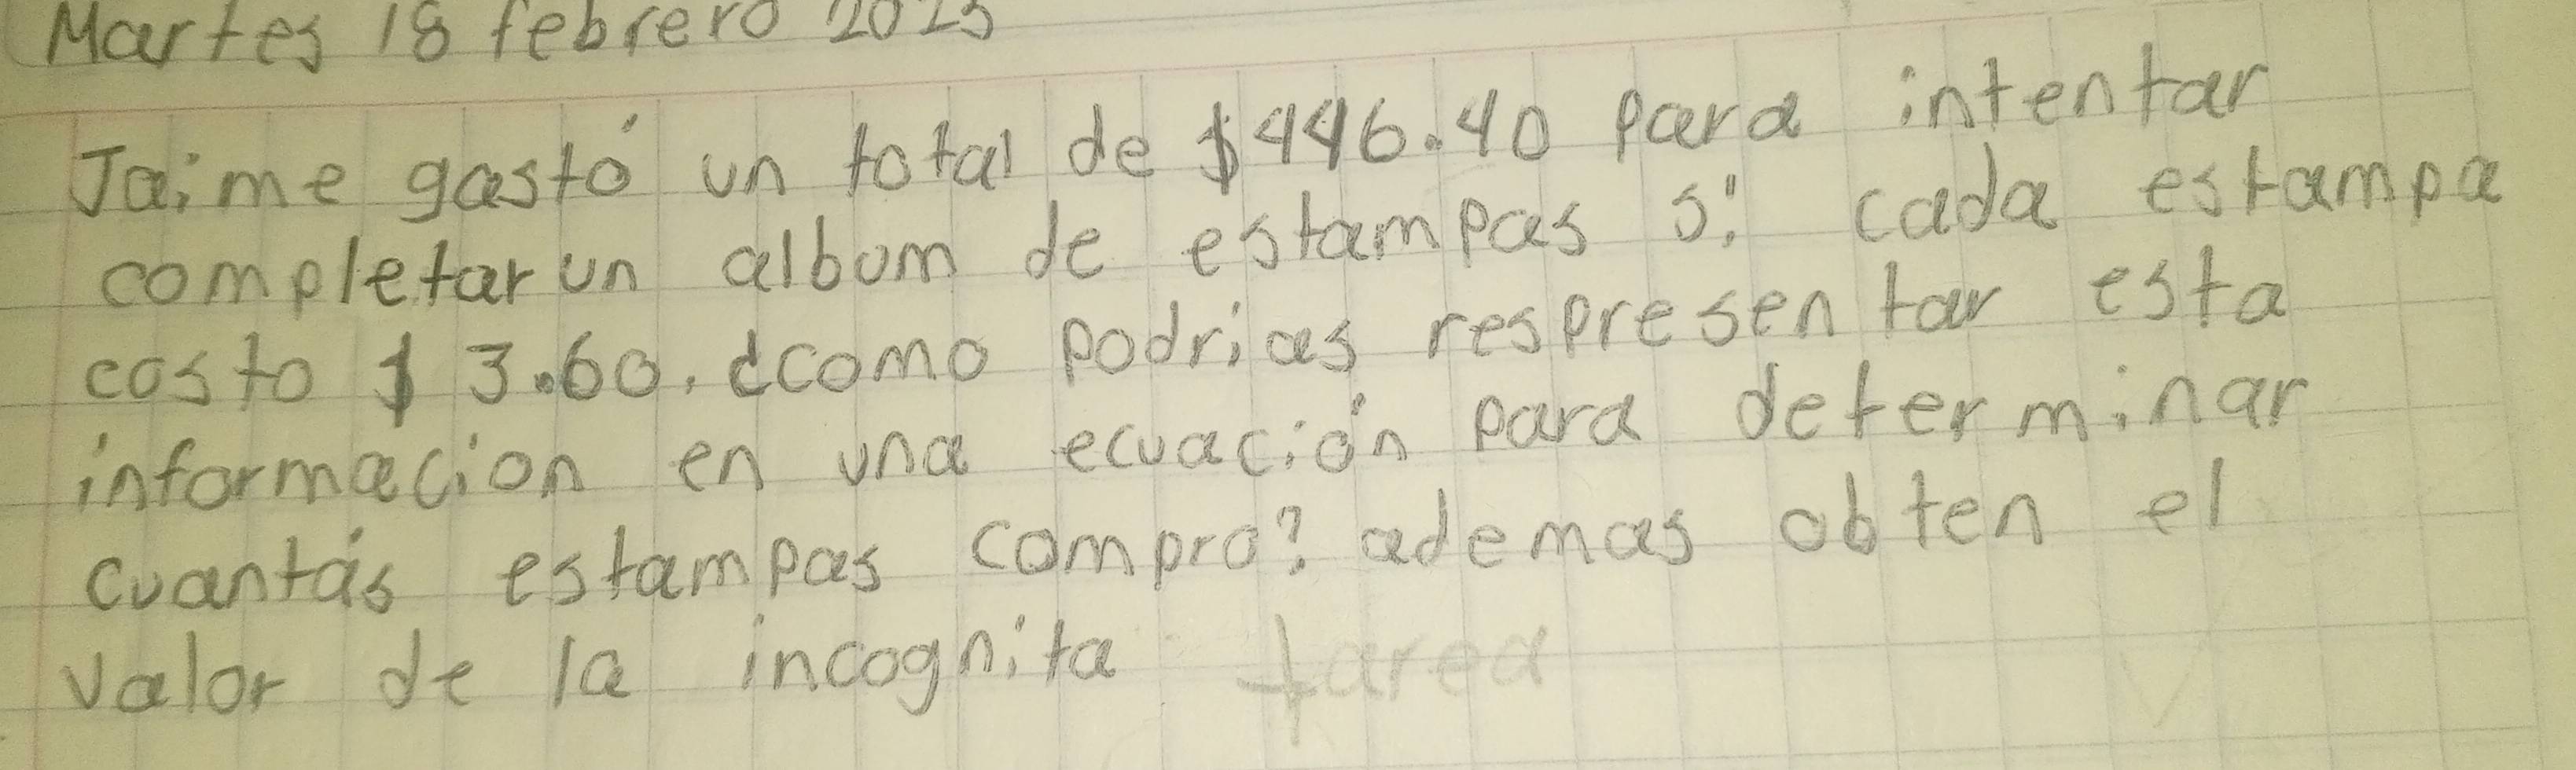 Martes 18 febrero 2025
Jaime gastó un total de $446.40 para intentar
completar un album de estampas si cada estampa
costo $3.60. ¿como podrias respresentar esta
informacion en una ecuación para determinar
cuantás estampas compro? ademas obten el
valor de la incognita tarea